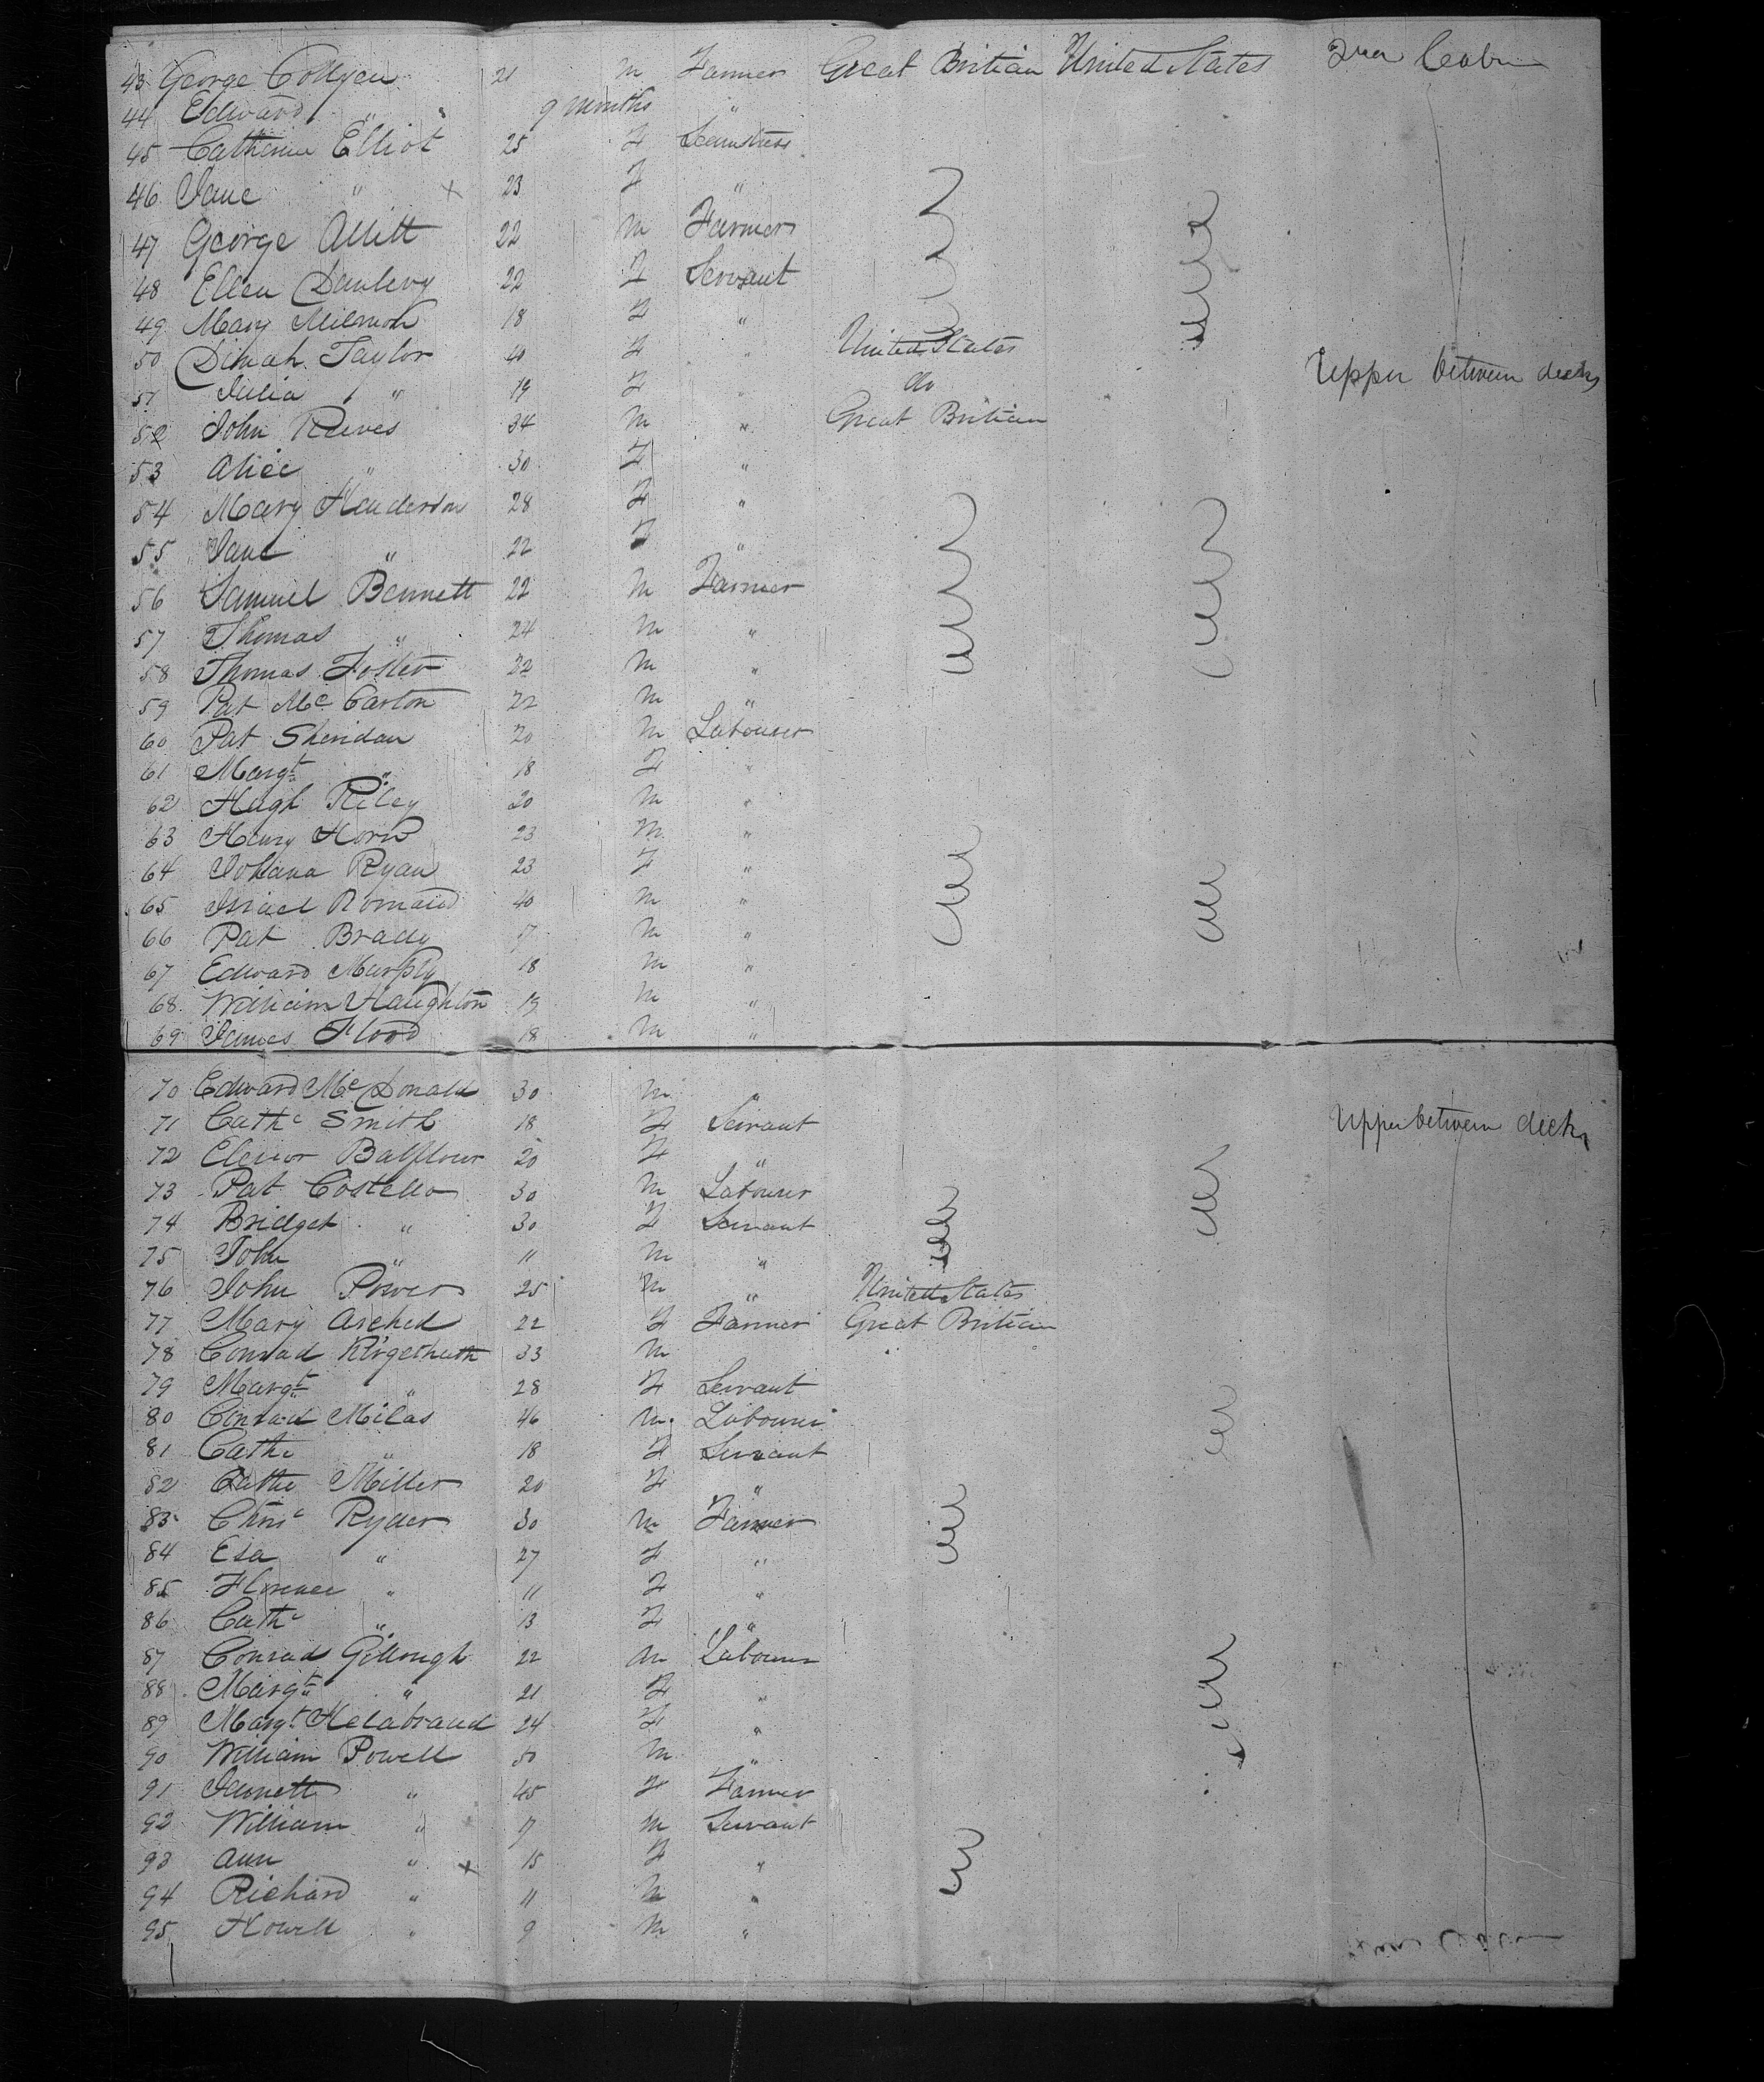 43 George Collyen 21 m Farmer Great Britian United States 2nd Cabin
44 Edward " 9 months "
45 Catherine Elliot 25 F Seamstress
46 Jane " x 23 F "
47 George Allitt 22 m Farmer
48 Ellen Dunlevy 22 F Servant
49 Mary Milmoh 18 F "
50 Dinah Taylor 40 F " United States
51 Julia " 19 F " do Upper between decks
52 John Reeves 34 m " Great Britian
53 Alice " 30 F "
54 Mary Henderson 28 F "
55 Jane " 22 F "
56 Samuel Bennett 22 m Farmer
57 Thomas " 24 m "
58 Thomas Foster 22 m "
59 Pat Mc Carton 22 m "
60 Pat Sheridan 20 m Labourer
61 Margt " 18 F "
62 Hugh Riley 20 m "
63 Henry Horn 23 m "
64 Johana Ryan 23 F "
65 Israel Romaid 40 m "
66 Pat Brady 17 m "
67 Edward Murphy 18 m "
68 William Haughton 19 m "
69 James Flood 18 m "
70 Edward Mc Donald 30 m "
71 Cathe Smith 18 F Servant Upper between decks
72 Elenor Balflour 20 F "
73 Pat Costello 30 m Labourer
74 Bridget " 30 F Servant
75 John " 11 m "
76 John Power 25 m " United States
77 Mary Arched 22 F Farmer Great Britian
78 Conrad 33 m
79 Margt " 28 F Servant
80 Conrad Milas 46 m Labourer
81 Cathe " 18 F Servant
82 Cathe Miller 20 F "
83 Chrisc Ryder 30 m Farmer
84 Esa " 27 F "
85 Florence " 11 F "
86 Cathe " 13 F "
87 Conrad Gillough 22 m Labourer
88 Margt " 21 F "
89 Margt Helabrand 24 F "
90 William Powell 50 m "
91 Jennett " 45 F Farmer
92 William " 17 m Servant
93 Ann " x 15 F "
94 Richard " 11 m "
95 Howell " 9 m "